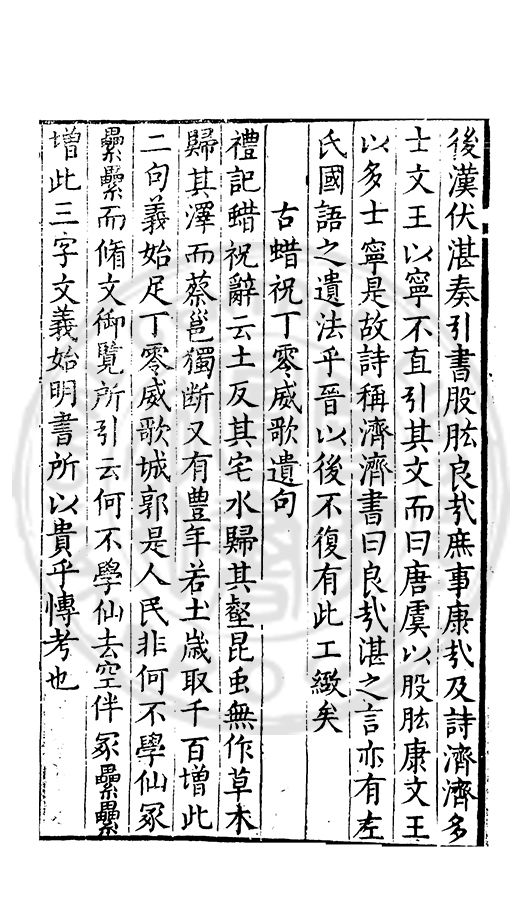 後漢伏湛奏引書股肱良㢤庶事康㢤及詩濟濟多
士文王以寧不直引其文而曰唐虞以股肱康文王
以多士寧是故詩稱濟濟書曰良㢤湛之言亦有左
氏國語之遺法乎晉以後不復有此工緻矣
古蜡祝丁零威歌遺句
禮記蜡祝辭云土反其宅水歸其壑昆虫無作草木
歸其澤而蔡邕獨断又有豊年若𡈽歲取千百增此
二句義始足丁零威歌城郭是人民非何不學仙冢
纍纍而脩文御覽所引云何不學仙去空伴冢纍纍
增此三字文義始明書所以貴乎愽考也